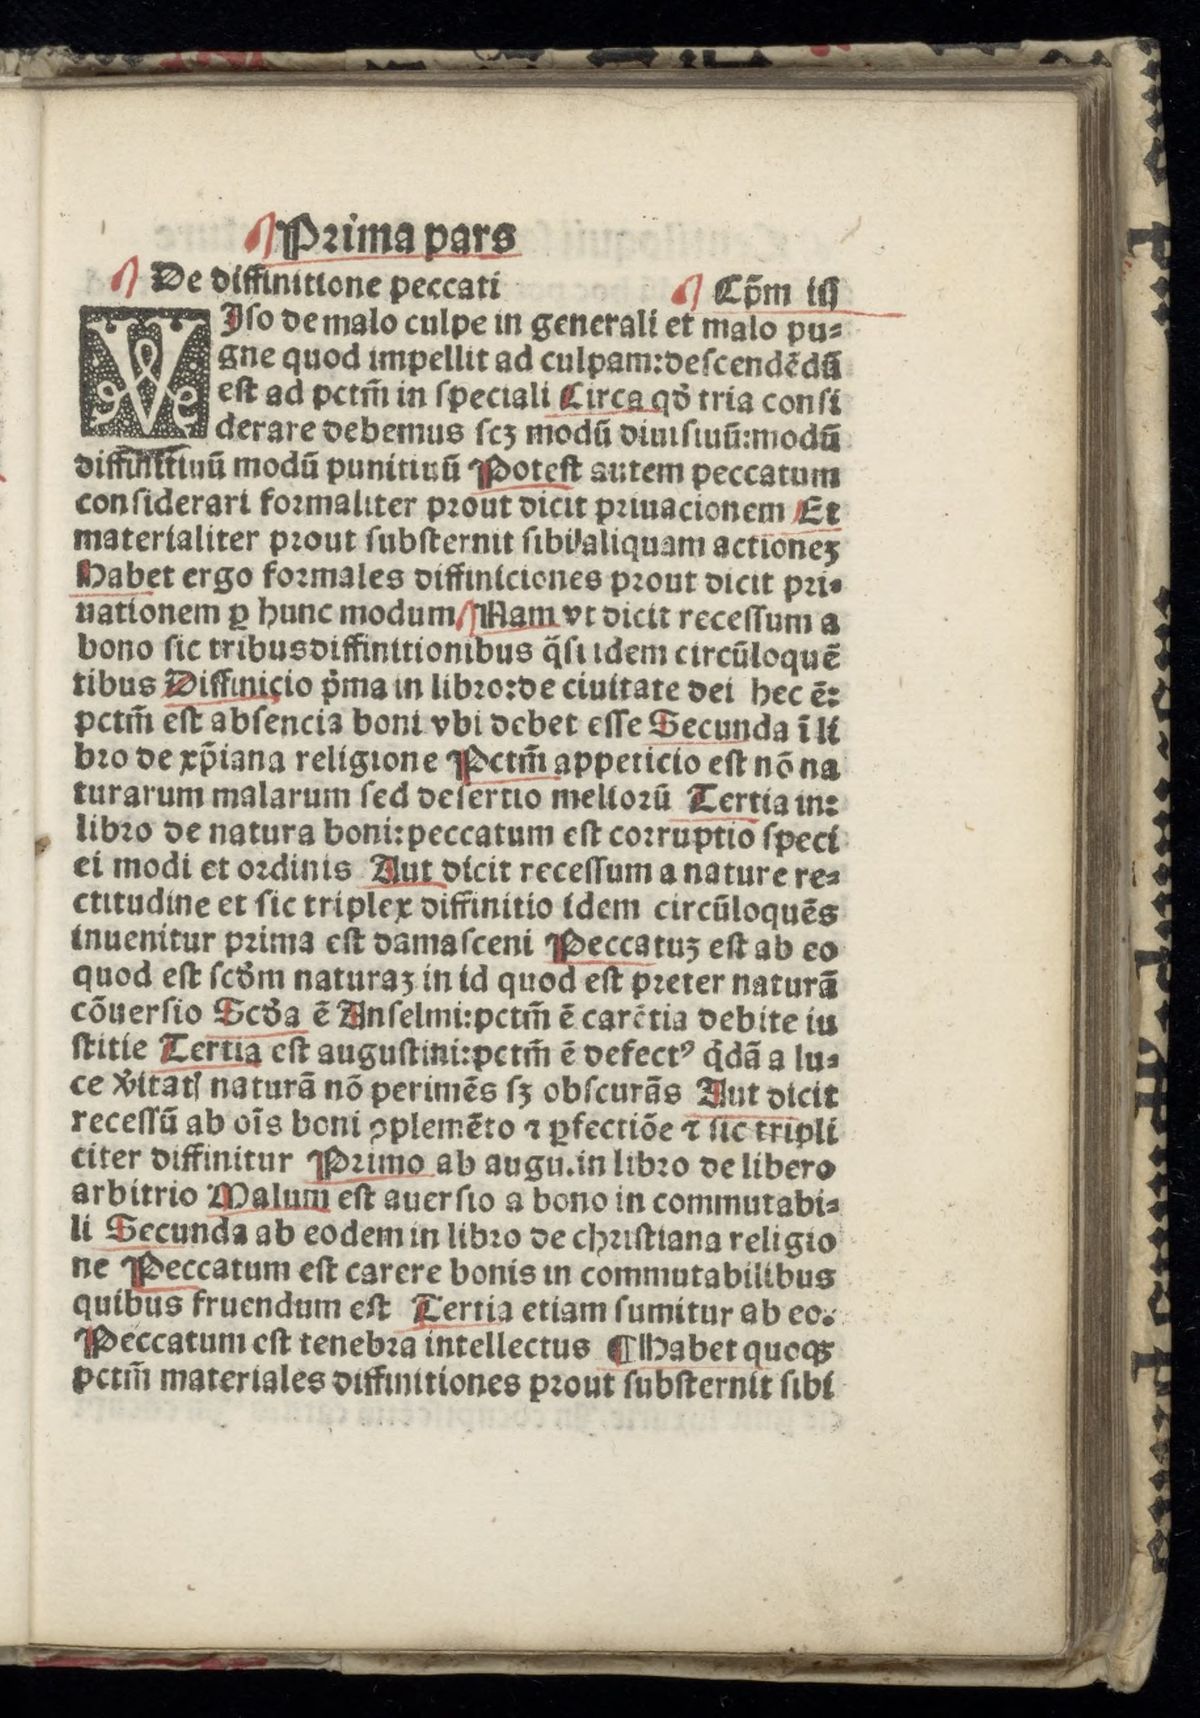 Prima pars
De diffinitione peccati Cp̃m iij
VIso de malo culpe in generali et malo pu⸗
gne quod impellit ad culpam:descendẽdũ
est ad pctm̃ in speciali Circa qḋ tria consi
derare debemus scꝫ modũ diuisiuũ:modũ
diffinitiuũ modũ punitiuũ Potest autem peccatum
considerari formaliter prout dicit priuacionem Et
materialiter prout substernit sibi aliquam actioneꝫ
Habet ergo formales diffiniciones prout dicit pri⸗
uationem ꝑ hunc modum Nam vt dicit recessum a
bono sic tribusdiffinitionibus q̃si idem circũloquẽ
tibus Diffinicio p̃ma in libro:de ciuitate dei hec ẽ:
pctm̃ est absencia boni vbi debet esse Secunda ĩ li
bro de xp̃iana religione Pctm̃ appeticio est nõ na
turarum malarum sed desertio meliorũ Tertia in:
libro de natura boni:peccatum est corruptio speci
ei modi et ordinis Aut dicit recessum a nature re⸗
ctitudine et sic triplex diffinitio idem circũloquẽs
inuenitur prima est damasceni Peccatuꝫ est ab eo
quod est scḋm naturaꝫ in id quod est preter naturã
cõuersio Scḋa ẽ Anselmi:pctm̃ ẽ carẽtia debite iu
stitie Tertia est augustini:pctm̃ ẽ defectꝰ q̃dã a lu⸗
ce v̾itatꝭ naturã nõ perimẽs sꝫ obscurãs Aut dicit
recessũ ab oĩs boni ꝯplemẽto ⁊ ꝑfectiõe ⁊ sic tripli
citer diffinitur Primo ab augu.in libro de libero
arbitrio Malum est auersio a bono in commutabi⸗
li Secunda ab eodem in libro de christiana religio
ne Peccatum est carere bonis in commutabilibus
quibus fruendum est Tertia etiam sumitur ab eo:
Peccatum est tenebra intellectus ¶Habet quoqꝫ
pctm̃ materiales diffinitiones prout substernit sibi